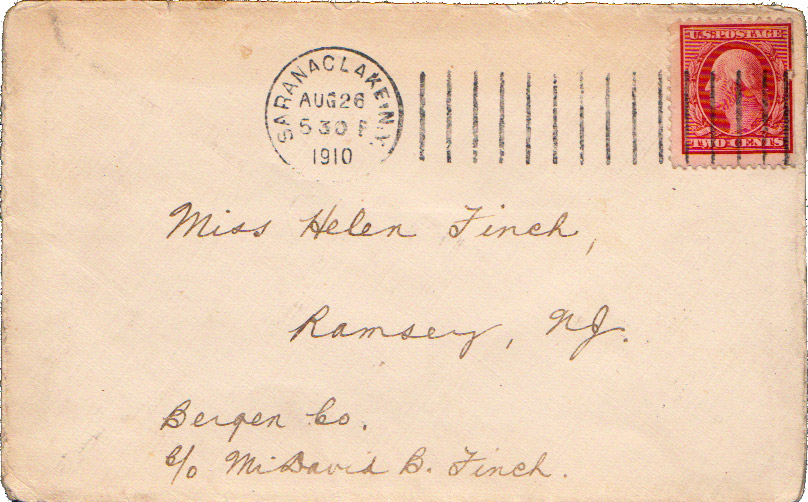 SARANAC LAKE, N.Y.
AUG 26
5 30 P
1910
U.S. POSTAGE
TWO CENTS
Miss Helen Finch,
Ramsey, NJ.
Bergen Co.
c/o Mr David B. Finch.